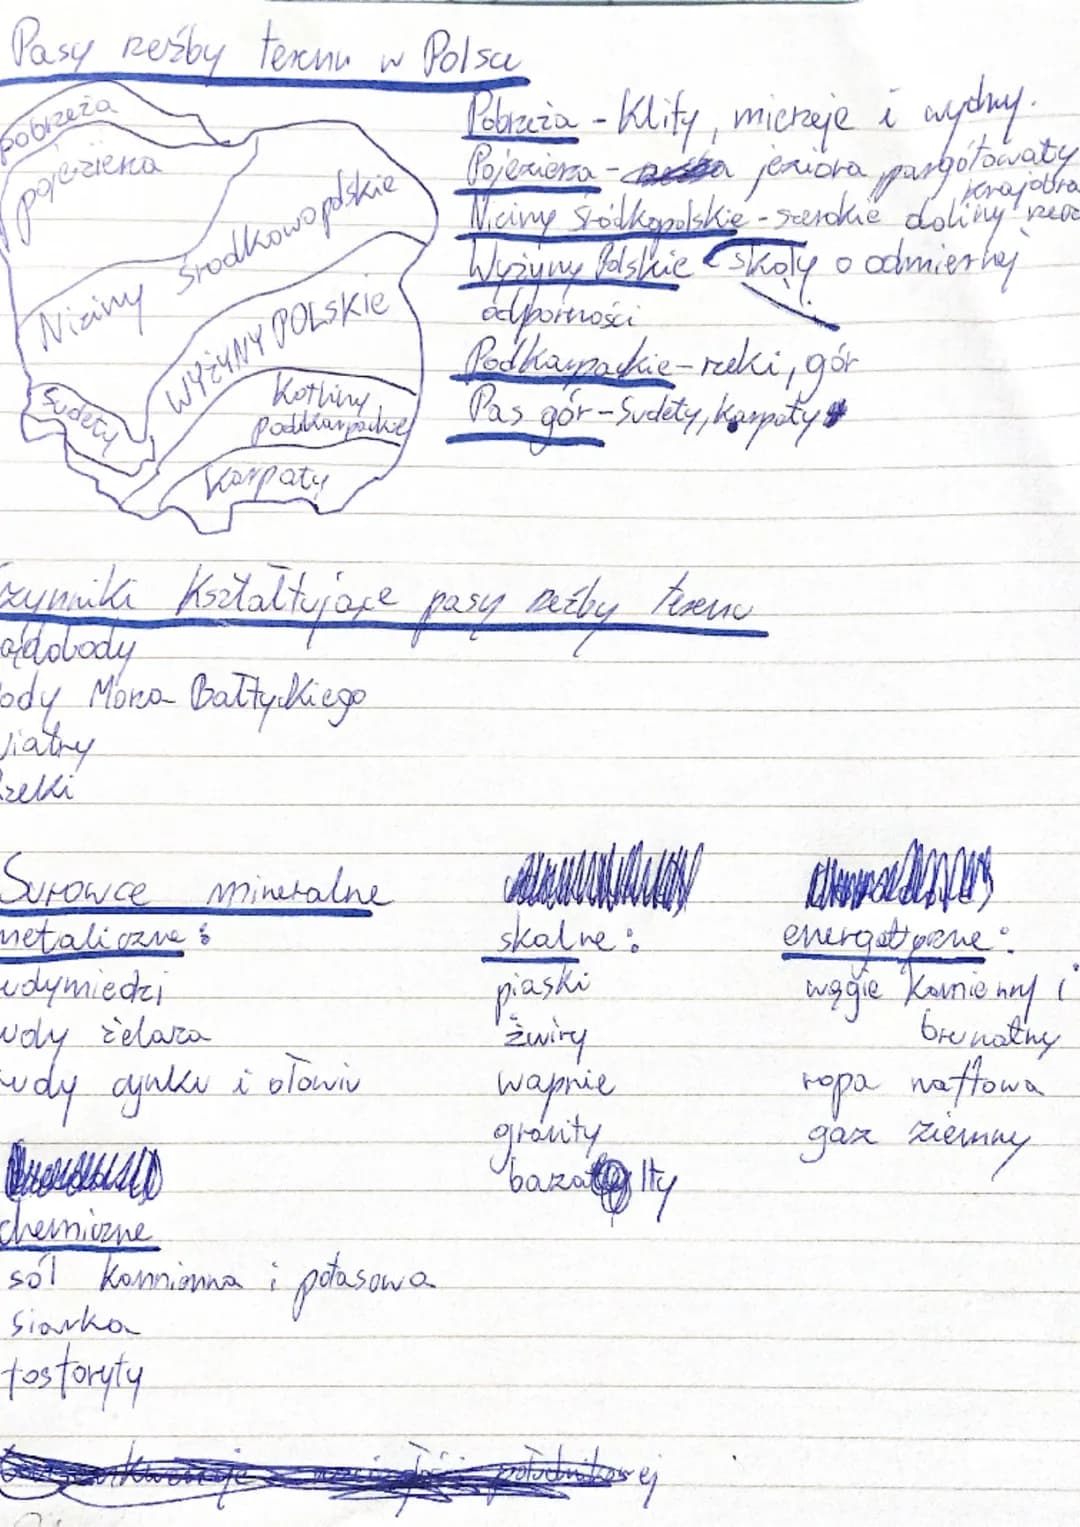 Pasy rzeźby terenu w Polsce
pobrzeża
pojezierza
Niziny Środkowopolskie
WYŻYNY POLSKIE
Sudety
Kotliny
podkarpackie
Karpaty
Pobrzeża - Klify, mierzeje i wydmy.
Pojezierza - jeziora, pargótowaty
krajobra
Niziny Śródkopolskie - szerokie doliny rzec
Wyżyny Polskie - skały o odmiernej
odporności
Podkarpackie - rzeki, gór
Pas gór - Sudety, Karpaty
zynniki Kształtujące pasy rzeźby terenu
ądolody
ody Morza Bałtyckiego
iatry
zeki
Surowce mineralne
metaliczne:
udymiedzi
udy żelaza
rudy cynku i ołowiu
skalne:
piaski
żwiry
wapnie
granity
bazalty
energetyczne:
węgie kamienny i
brunatny
ropa naftowa
gaz ziemny
chemiczne
sól kamionna i potasowa
siarka
fosforyty
południkowej